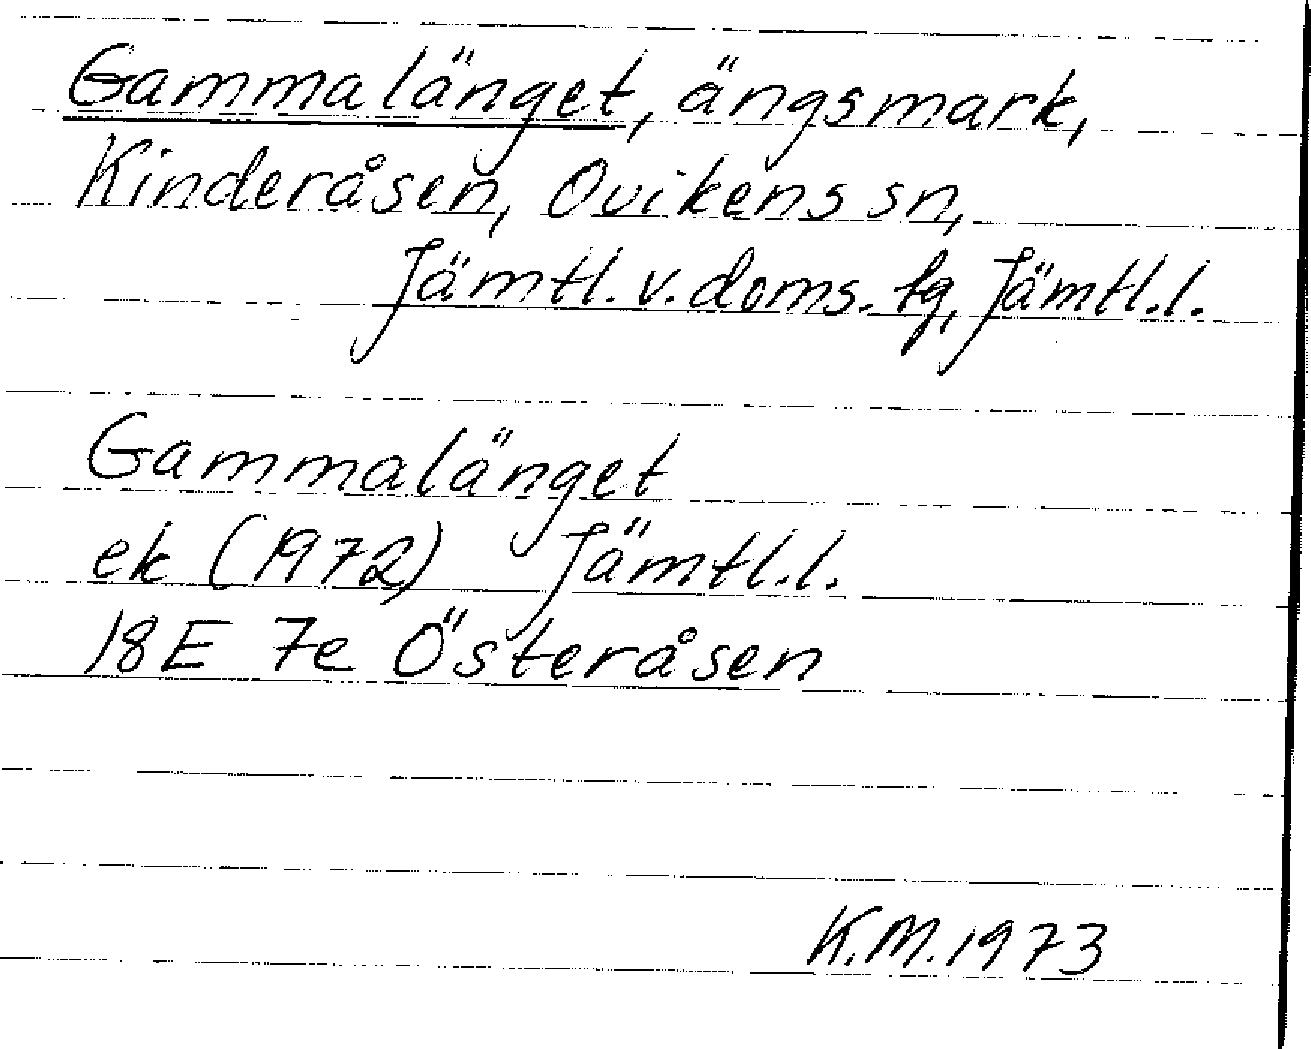 Gammalänget, ängsmark,
Kinderåsen, Ovikens sn,
Jämtl. v. doms. tg, Jämtl.l.
Gammalänget
ek (1972) Jämtl.l.
18E 7e Österåsen
K.M. 1973